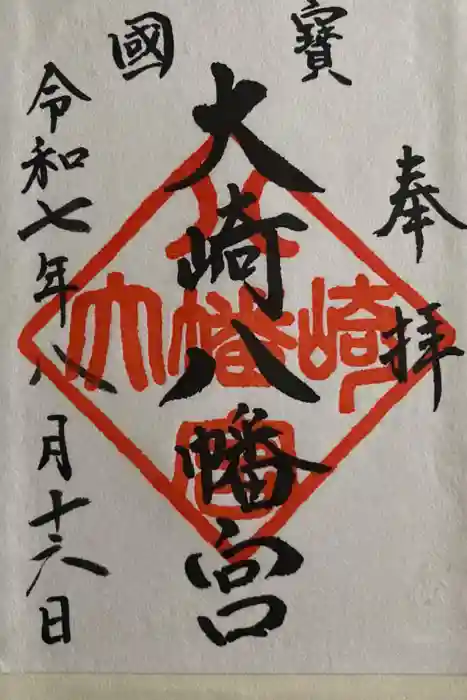 國寳
奉拝
大崎八幡宮
令和七年八月十六日
八
大幡崎
宮